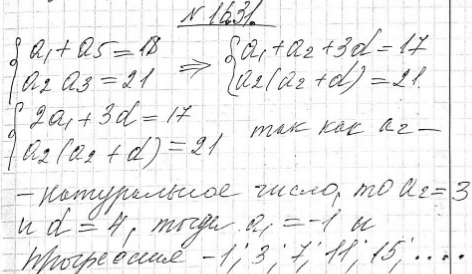 № 1631.
{ a₁ + a5 = 18
a₂ a3 = 21 ⇒ { a₁ + a₂ + 3d = 17
a₂(a₂ + d) = 21.
{ 2a₁ + 3d = 17
a₂(a₂ + d) = 21 так как a₂ –
– натуральное число, то a₂ = 3
и d = 4, тогда a₁ = -1 и
прогрессия -1; 3; 7; 11; 15; ....